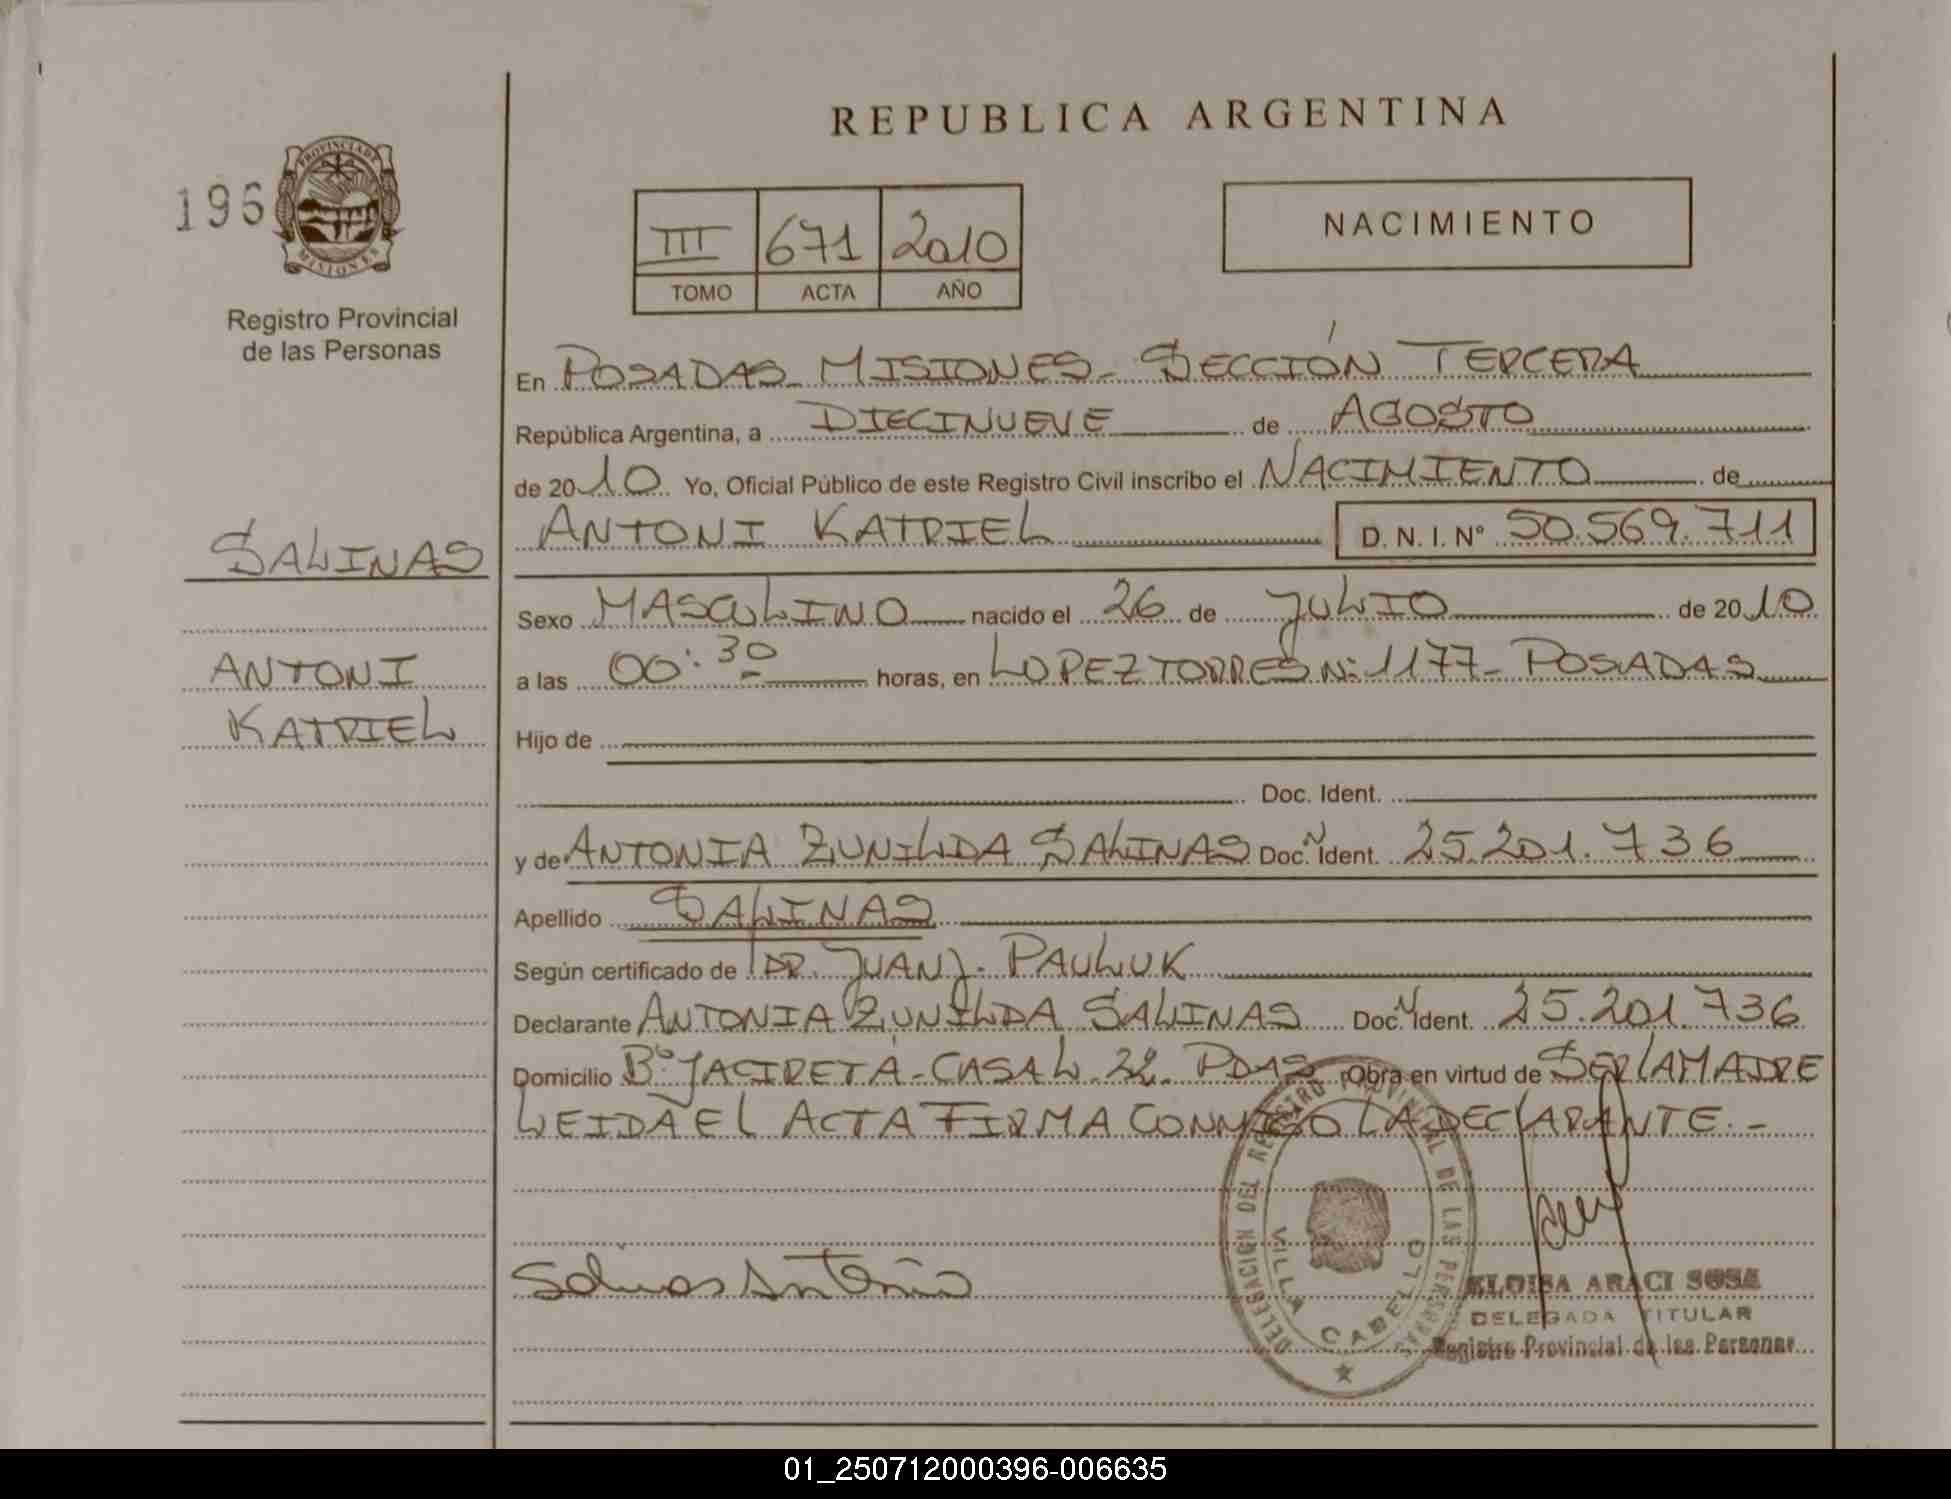 REPUBLICA ARGENTINA
196
PROVINCIA DE
MISIONES
Registro Provincial
de las Personas
III 671 2010
TOMO ACTA AÑO
NACIMIENTO
En POSADAS MISIONES - SECCIÓN TERCERA
República Argentina, a DIECINUEVE de AGOSTO
de 2010 Yo, Oficial Público de este Registro Civil inscribo el NACIMIENTO de
ANTONI KATRIEL D. N. I. Nº 50.569.711
SALINAS
ANTONI
KATRIEL
Sexo MASCULINO nacido el 26 de JULIO de 2010
a las 00:30 horas, en LOPEZ TORRES Nº 1177 - POSADAS
Hijo de
Doc. Ident.
y de ANTONIA ZUNILDA SALINAS Doc. Ident. 25.201.736
Apellido SALINAS
Según certificado de DR. JUAN J. PAULUK
Declarante ANTONIA ZUNILDA SALINAS Doc. Ident. 25.201.736
Domicilio Bº YACIRETA - CASA L 32 PDAS Obra en virtud de SER LA MADRE
LEIDA EL ACTA FIRMA CONMIGO LA DECLARANTE. -
Salinas Antonia
DELEGACION DEL REGISTRO PROVINCIAL DE LAS PERSONAS
VILLA CABELLO
ELOISA ARACI SOSA
DELEGADA TITULAR
Registro Provincial de las Personas
01_250712000396-006635